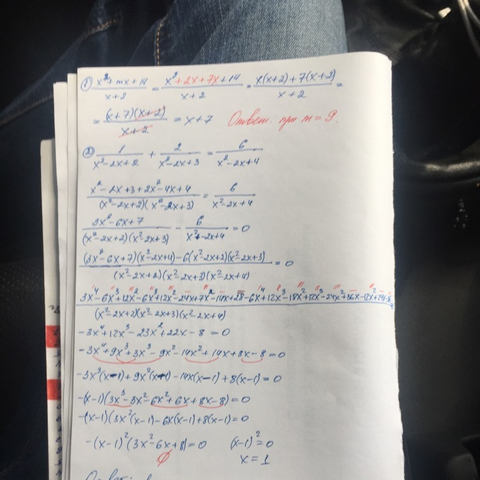 ① (x²+mx+14)/(x+2) = (x²+2x+7x+14)/(x+2) = (x(x+2)+7(x+2))/(x+2) =
= ((x+7)(x+2))/(x+2) = x+7 Ответ: при m=9.
② 1/(x²-2x+2) + 2/(x²-2x+3) = 6/(x²-2x+4)
(x²-2x+3+2x²-4x+4)/((x²-2x+2)(x²-2x+3)) = 6/(x²-2x+4)
(3x²-6x+7)/((x²-2x+2)(x²-2x+3)) - 6/(x²-2x+4) = 0
((3x²-6x+7)(x²-2x+4)-6(x²-2x+2)(x²-2x+3))/((x²-2x+2)(x²-2x+3)(x²-2x+4)) = 0
(x²-2x+2)(x²-2x+3)(x²-2x+4)
-3x⁴+12x³-23x²+22x-8=0
-3x⁴+9x³+3x³-9x²-14x²+14x+8x-8=0
-3x³(x-1)+9x²(x-1)-14x(x-1)+8(x-1)=0
-(x-1)(3x³-3x²-6x²+6x+8x-8)=0
-(x-1)(3x²(x-1)-6x(x-1)+8(x-1)=0
-(x-1)²(3x²-6x+8)=0 (x-1)²=0
∅ x=1